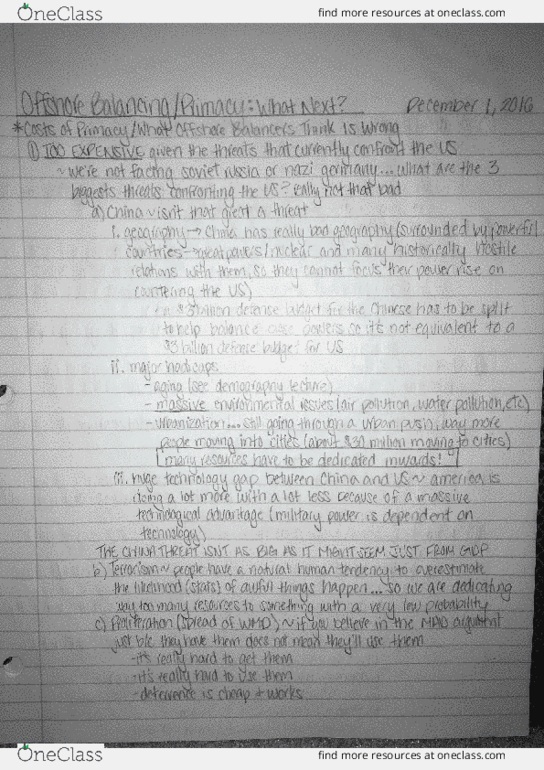 OneClass
find more resources at oneclass.com
Offshore Balancing/Primacy: What Next? December 1, 2016
*Costs of Primacy/What Offshore Balancers Think Is Wrong
① TOO EXPENSIVE given the threats that currently confront the US
~ we're not facing soviet russia or nazi germany... what are the 3
biggests threats confronting the US? really not that bad
a) China ~ isn't that great a threat
i. geography → China has really bad geography (surrounded by powerful
countries - great powers/nuclear and many historically hostile
relations with them, so they cannot focus their power rise on
countering the US)
ex. $3billion defense budget for the Chinese has to be split
to help balance powers so it's not equivalent to a
$3 billion defense budget for US
ii. major handicaps
- aging (see demography lecture)
- massive environmental issues (air pollution, water pollution, etc)
- urbanization... still going through a urban push, way more
people moving into cities (about 30 million moving to cities)
many resources have to be dedicated inwards!
iii. huge technology gap between China and US ~ america is
doing a lot more with a lot less because of a massive
technological advantage (military power is dependent on
technology)
THE CHINA THREAT ISN'T AS BIG AS IT MIGHT SEEM JUST FROM GDP
b) Terrorism ~ people have a natural human tendency to overestimate
the likelihood (stars) of awful things happen... so we are dedicating
way too many resources to something with a very low probability
c) Proliferation (spread of WMD) ~ if you believe in the MAD argument
just b/c they have them does not mean they'll use them
- it's really hard to get them
- it's really hard to use them
- deterrence is cheap + works
OneClass
find more resources at oneclass.com